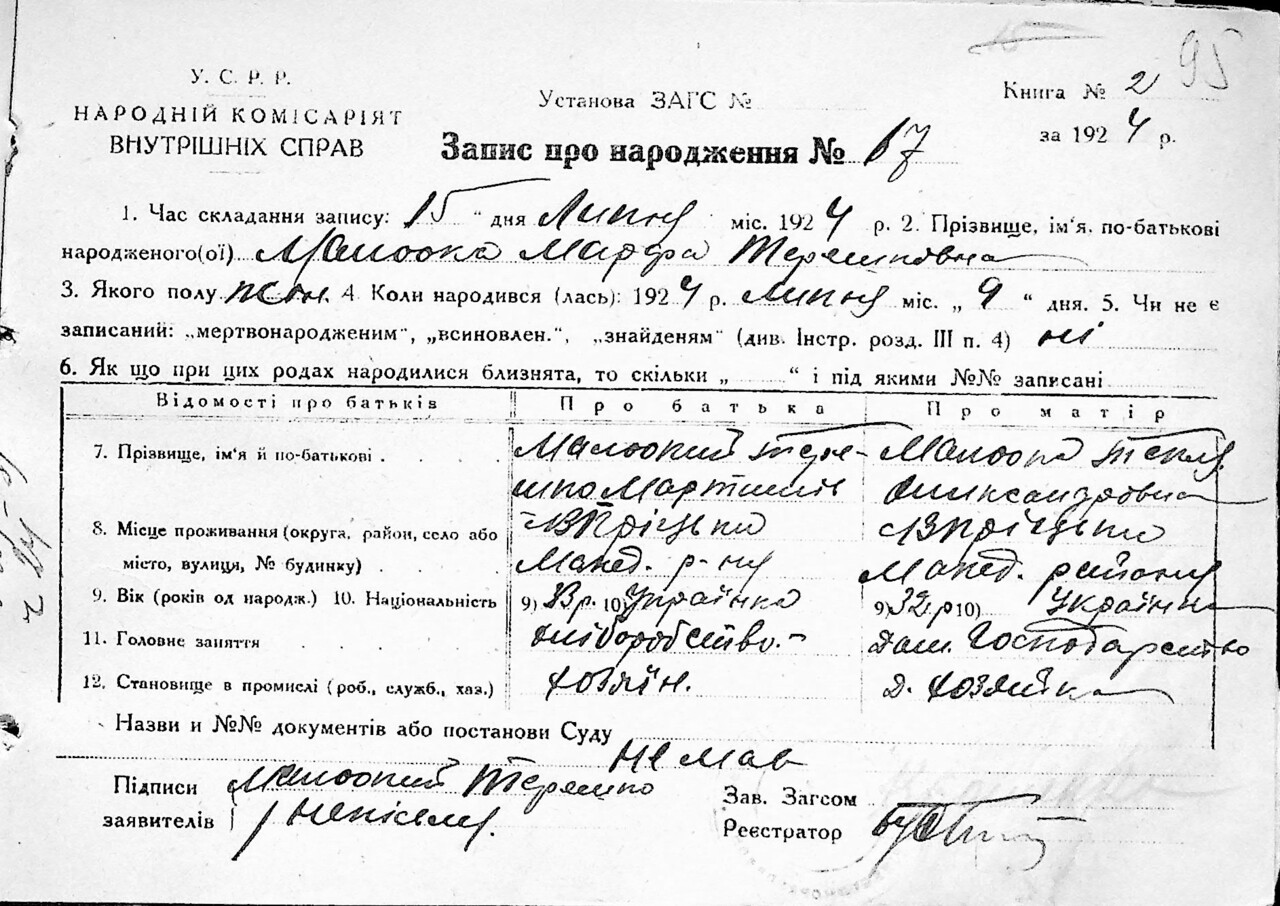 95
У. С. Р. Р.
НАРОДНІЙ КОМІСАРІЯТ
ВНУТРІШНІХ СПРАВ
Установа ЗАГС №
Книга № 2
за 1924 р.
Запис про народження № 17
1. Час складання запису: 15 " дня Липня міс. 1924 р. 2. Прізвище, ім'я, по-батькові
народженого(ої) Малоока Марфа Терешківна
3. Якого полу жін. 4. Коли народився (лась): 1924 р. липня міс. „ 9 " дня. 5. Чи не є
записаний: „мертвонародженим", „всиновлен.", „знайденям" (див. Інстр. розд. III п. 4) ні
6. Як що при цих родах народилися близнята, то скільки „ " і під якими №№ записані
Відомості про батьків Про батька Про матір
7. Прізвище, ім'я й по-батькові Малоокий Тере- Малоока Текля
шко Мартинів Олександровна
8. Місце проживання (округа, район, село або
місто, вулиця, № будинку) Манед. р-ну Манед. району
9. Вік (років од народж.) 10. Національність 9) 33 р. 10) Українка 9) 32 р 10) Українка
11. Головне заняття хліборобство.- Дом. Господарство
12. Становище в промислі (роб., служб., хаз.) хозяїн. д. хозяйка
Назви и №№ документів або постанови Суду
не мав
Підписи Малоокий Терешко
заявителів / неписьм.
Зав. Загсом
Реєстратор